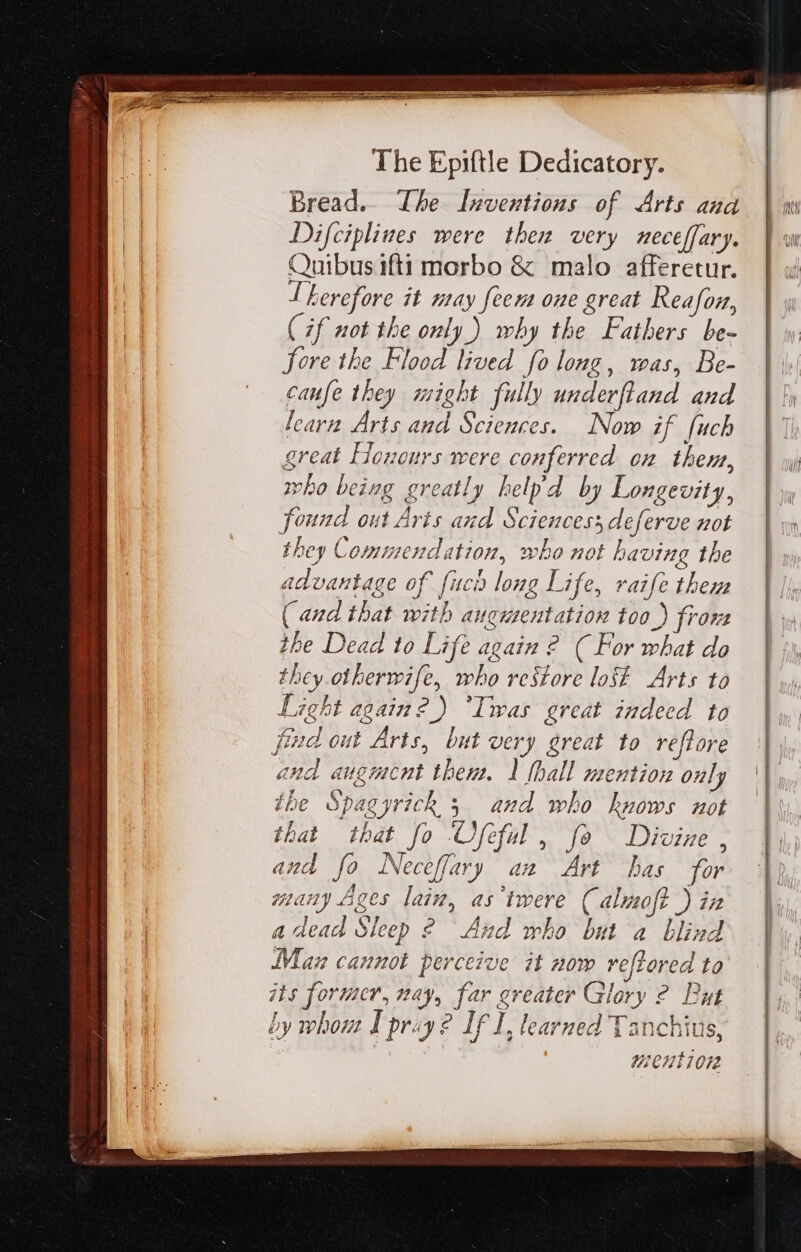 The Epiſtle Dedicatory.
Bread. The Inventions of Arts and
Diſciplines were then very neceſſary.
Quibus iſti morbo & malo afferetur.
Therefore it may ſeem one great Reaſon,
(if not the only) why the Fathers be-
fore the Flood lived ſo long, was, Be-
cauſe they might fully underſtand and
learn Arts and Sciences. Now if ſuch
great Honours were conferred on them,
who being greatly help'd by Longevity,
found out Arts and Sciences; deſerve not
they Commendation, who not having the
advantage of ſuch long Life, raiſe them
(and that with augmentation too) from
the Dead to Life again? (For what do
they otherwiſe, who reſtore loſt Arts to
Light again?) 'Twas great indeed to
find out Arts, but very great to reſtore
and augment them. I ſhall mention only
the Spagyrick; and who knows not
that that ſo Uſeful, ſo Divine,
and ſo Neceſſary an Art has for
many Ages lain, as 'twere (almoſt) in
a dead Sleep? And who but a blind
Man cannot perceive it now reſtored to
its former, nay, far greater Glory? But
by whom I pray? If I, learned Tanchius,
mention